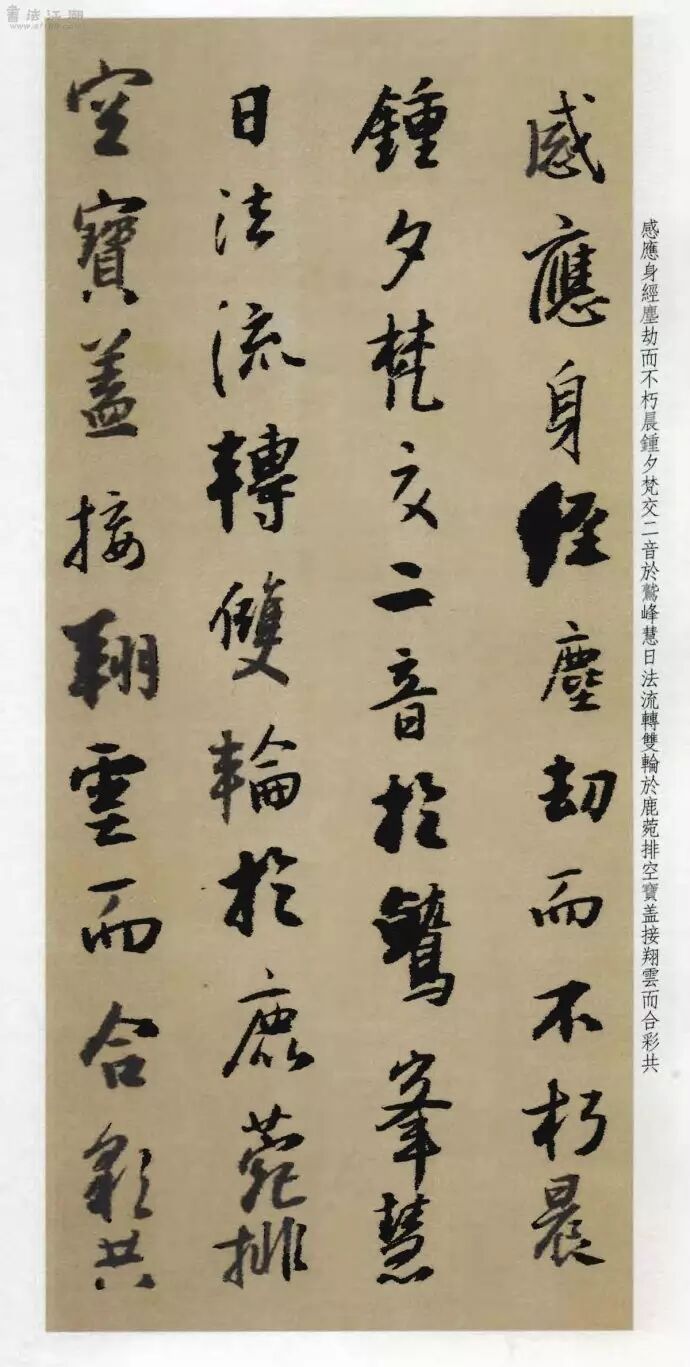 感應身經塵劫而不朽晨
鍾夕梵交二音於鷲峯慧
日法流轉雙輪於鹿菀排
空寶蓋接翔雲而合彩共
感應身經塵劫而不朽晨鍾夕梵交二音於鷲峰慧日法流轉雙輪於鹿菀排空寶盖接翔雲而合彩共
書法江湖